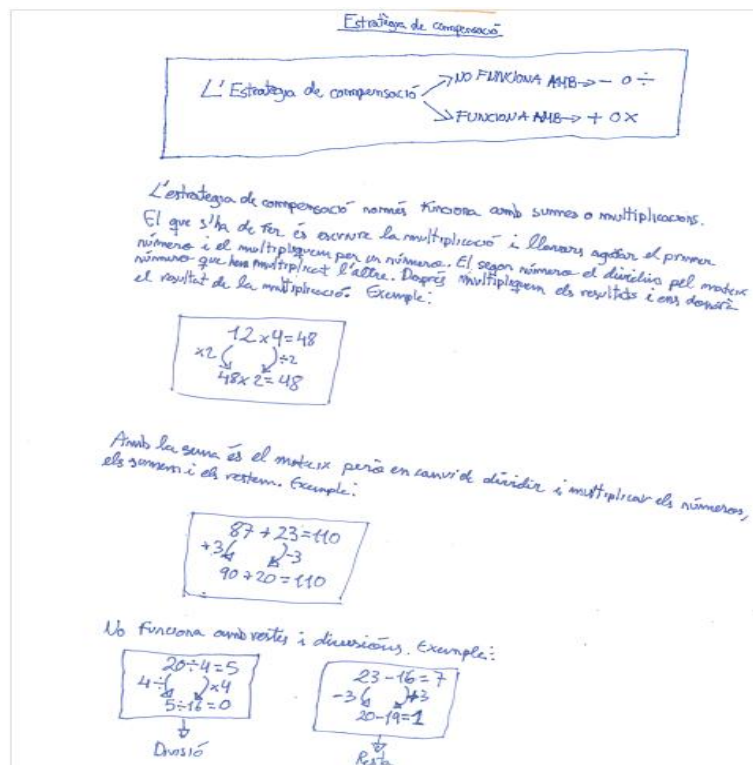 Estratègia de compensació
L'Estrategia de compensació
NO FUNCIONA AMB → - o ÷
FUNCIONA AMB → + o x
L'estrategia de compensació només funciona amb sumes o multiplicacions.
El que s'ha de fer és escriure la multiplicació i llavors agafar el primer
número i el multipliquem per un número. El segon número el dividim pel mateix
número que hem multiplicat l'altre. Després multipliquem els resultats i ens donarà
el resultat de la multiplicació. Exemple:
12 x 4 = 48
x2 ÷2
48 x 2 = 48
Amb la suma és el mateix però en canvi de dividir i multiplicar els números,
els sumem i els restem. Exemple:
87 + 23 = 110
+3 -3
90 + 20 = 110
No funciona amb restes i divisions. Exemple:
20 ÷ 4 = 5
4÷ x4
5 ÷ 16 = 0
Divisió
23 - 16 = 7
-3 +3
20 - 19 = 1
Resta